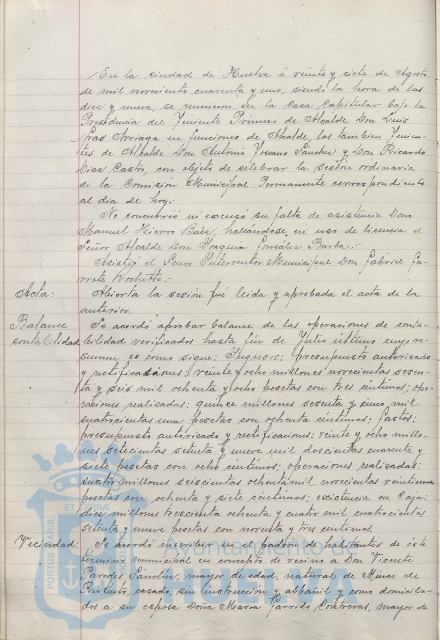 En la ciudad de Huelva á veinte y siete de Agosto
de mil novecientos cuarenta y uno, siendo la hora de las
diez y nueve, se reunieron en la Casa Capitular bajo la
Presidencia del Teniente Primero de Alcalde Don Luis
Arriaga en funciones de Alcalde, los tambien Tenien-
tes de Alcalde Don Antonio Sánchez y Don Ricardo
Diaz Castro, con objeto de celebrar la sesión ordinaria
de la Comisión Municipal Permanente correspondiente
al dia de hoy.
No concurrió ni excusó su falta de asistencia Don
Manuel Hierro Báez, hallándose en uso de licencia el
Señor Alcalde Don Joaquin González Barba.
Asistió el Señor Interventor Municipal Don Gabriel Ga-
rrote Rochette.
Acta: Abierta la sesión fué leida y aprobada el acta de la
anterior.
Balance Se acordó aprobar balance de las operaciones de conta-
contabilidad bilidad verificados hasta fin de Julio ultimo cuyo re-
sumen es como sigue: Ingresos: presupuesto autorizado
y rectificaciones; veinte y ocho millones novecientas sesen-
ta y seis mil ochenta y ocho pesetas con tres centimos; ope-
raciones realizadas: quince millones sesenta y cinco mil
cuatrocientas una pesetas con ochenta centimos; Gastos:
presupuesto autorizado y rectificaciones: veinte y ocho millo-
nes setecientas setenta y nueve mil doscientas cuarenta y
siete pesetas con ocho centimos; operaciones realizadas:
cuatro millones seiscientas ochenta mil novecientas veintiuna
pesetas con ochenta y siete centimos; existencia en Caja:
diez millones trescientas ochenta y cuatro mil cuatrocientas
setenta y nueve pesetas con noventa y tres centimos.
Vecindad: Se acordó inscribir en el padrón de habitantes de este
término municipal en concepto de vecino a Don Vicente
Paredes Sánchez, mayor de edad, natural de Minas de
Riotinto, casado, sin instrucción y albañil y como domicilia-
dos a su esposa Doña Maria Garrido Contreras, mayor de
Ayuntamiento de
PORTUS MARIS ET